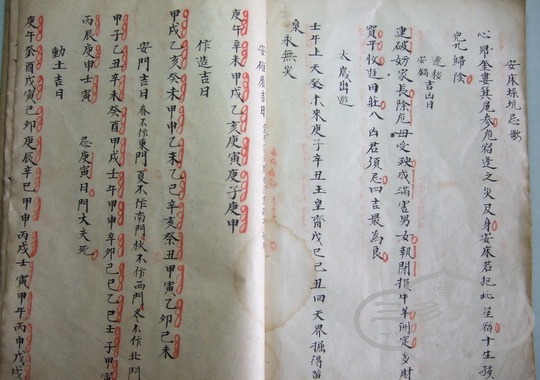 安床
忌歌
心昴奎婁箕尾參危宿逢之災及身安床若犯此星宿十生孩
兒九歸陰
安鍋吉凶日
建破妨家長除危母受殃成滿害男女執閉損牛羊開定多財
寶平收進田庄八凶君須忌四吉最為良
太歲出遊
壬午上天癸
來庚子辛丑玉皇齋戊己己丑回天界掘得
泉永無災
安碓磨吉日
庚午辛未甲戌乙亥庚寅庚子庚申
作造吉日
甲戌乙亥癸未甲申乙未乙巳辛亥癸丑甲寅乙卯己未
安門吉日 春不作東門夏不作南門秋不作西門冬不作北門
甲子乙丑辛未癸酉甲戌壬午甲申辛卯己巳乙巳壬子甲寅
丙辰庚申壬寅 忌庚寅日門大夫死
動土吉日
庚午癸酉戊寅己卯庚辰辛巳甲申丙戌壬寅甲午丙申戊戌